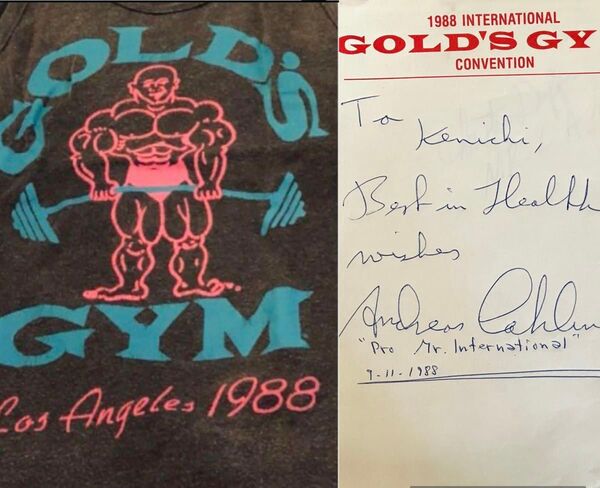 GOLD'S
GYM
Los Angeles 1988
1988 INTERNATIONAL
GOLD'S GY
CONVENTION
To
Kenichi,
Best in Health
wishes
Andreas Cahlin
"Pro Mr. International"
9-11-1988